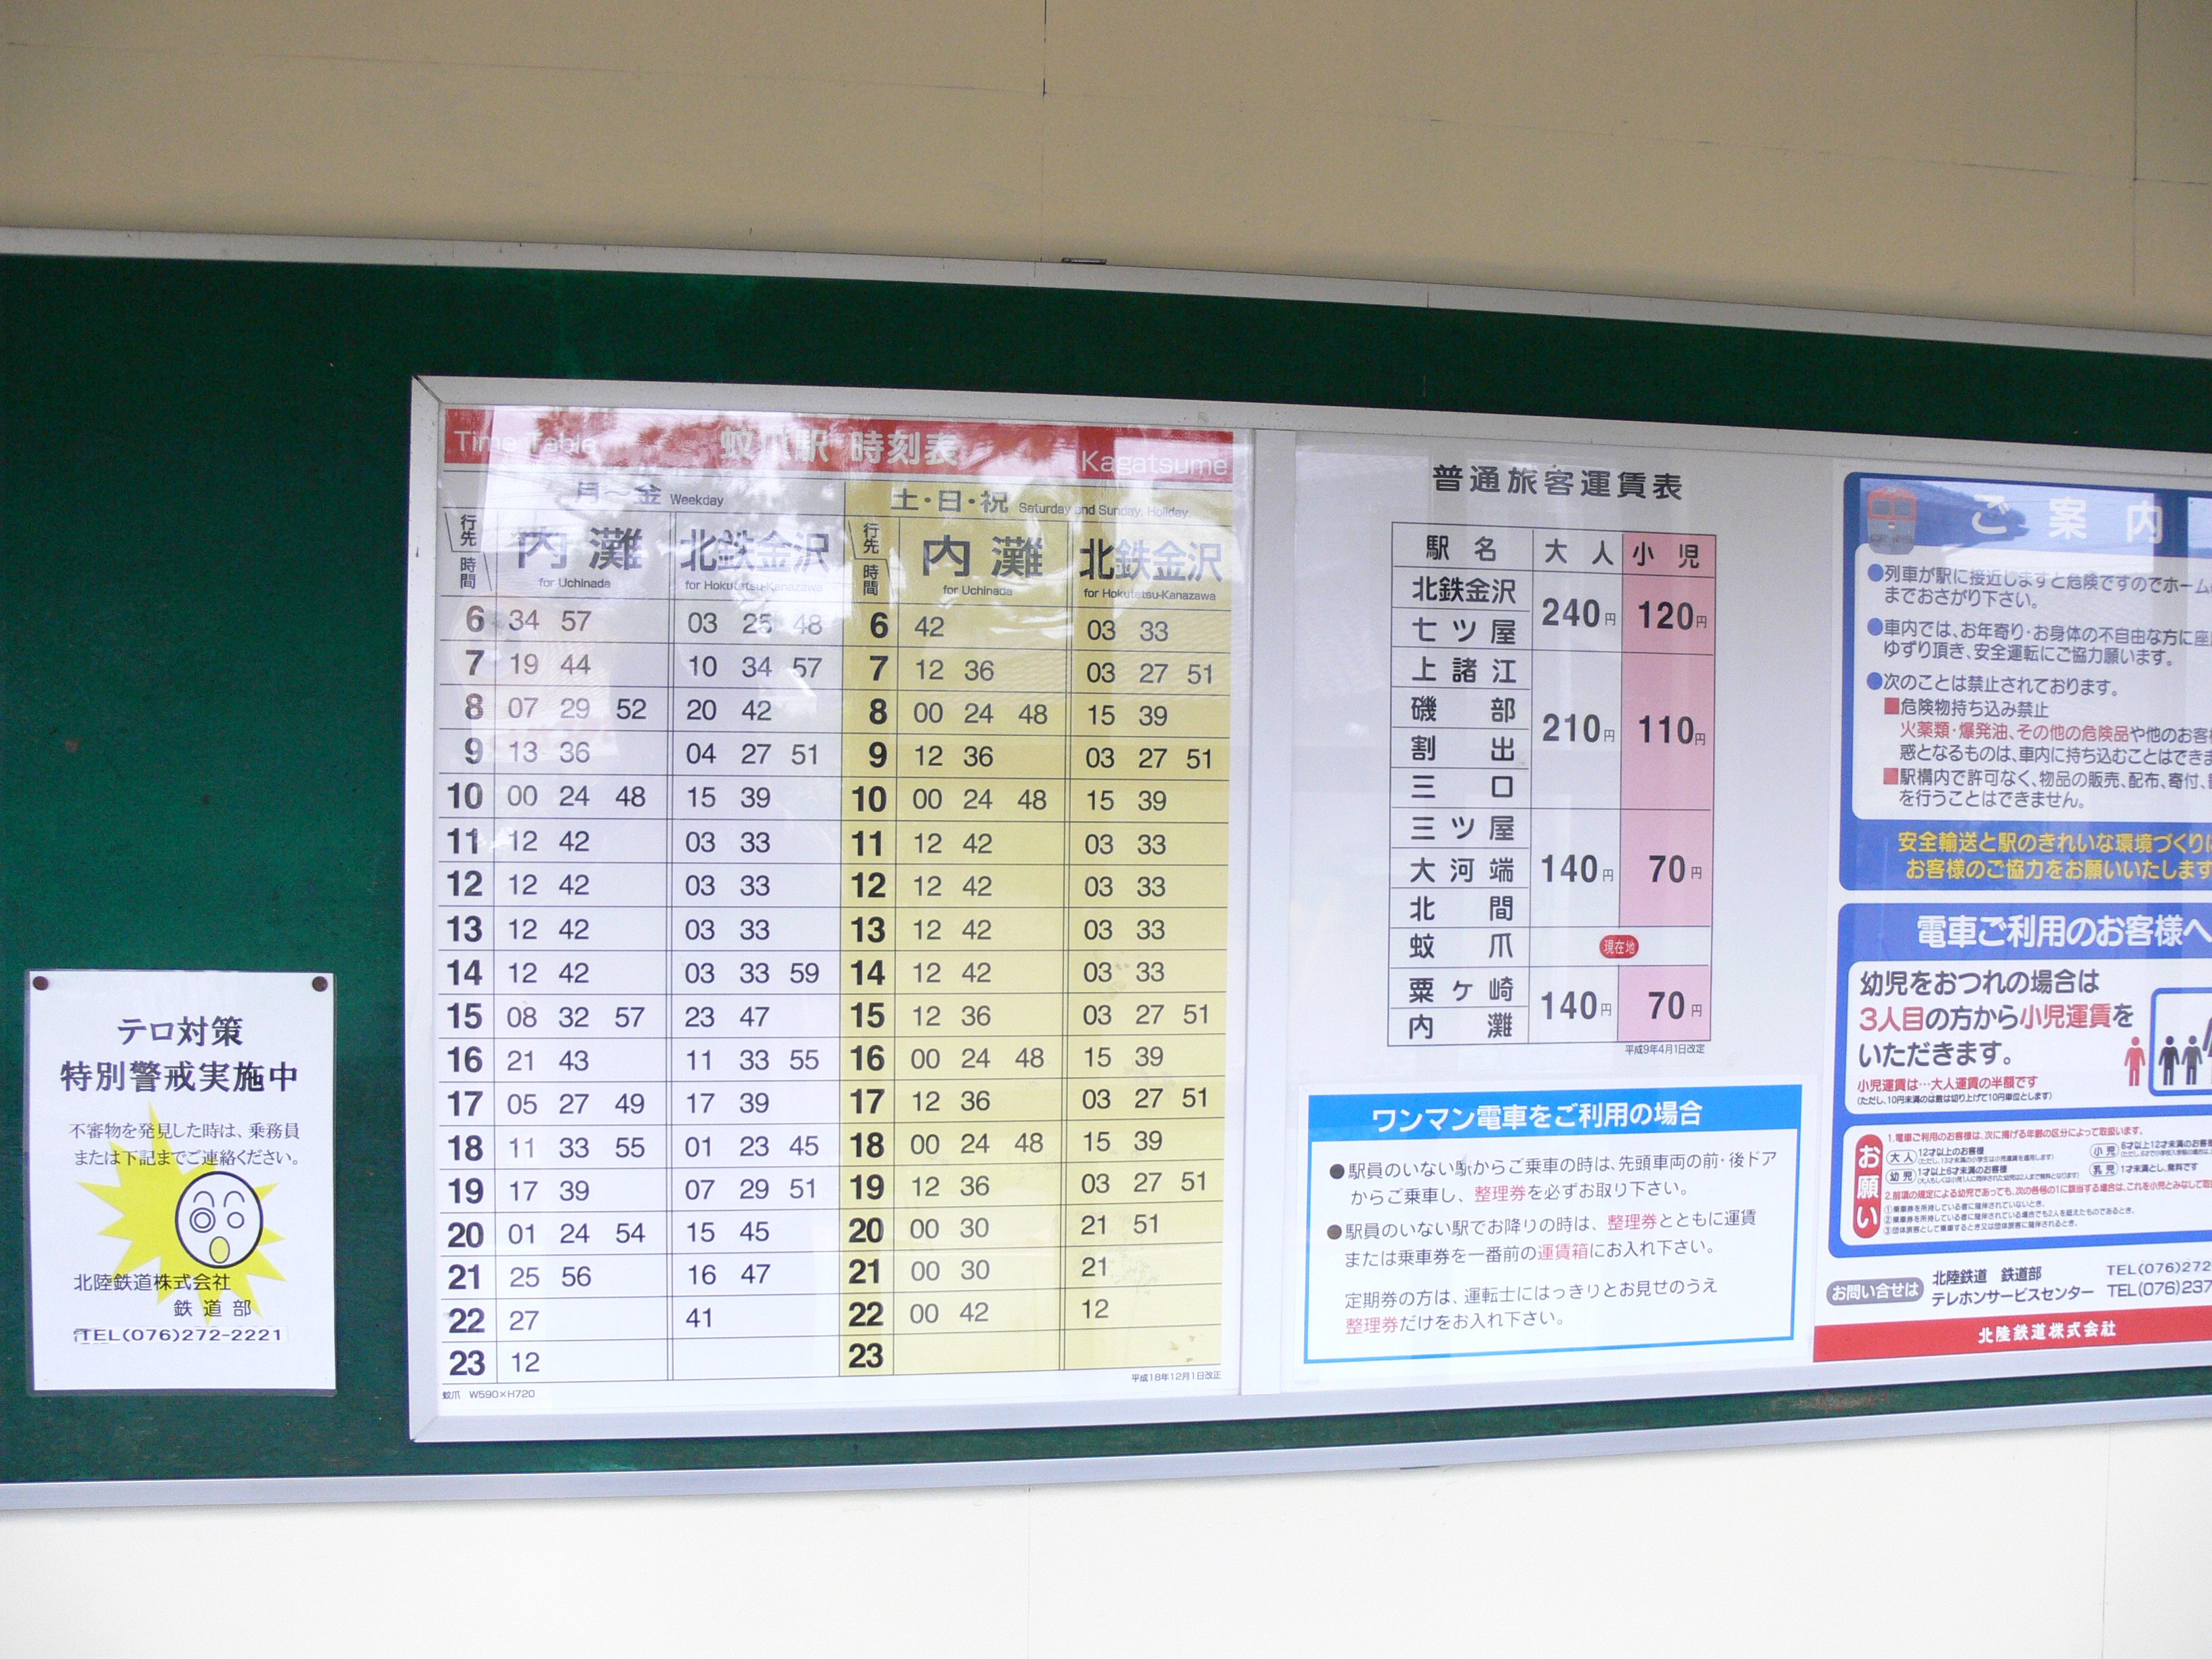 テロ対策
特別警戒実施中
不審物を発見した時は、乗務員
または下記までご連絡ください。
北陸鉄道株式会社
鉄道部
TEL(076)272-2221
Time Table 蚊爪駅 時刻表 Kagatsume
月～金 Weekday 土・日・祝 Saturday and Sunday. Holiday.
行先 内灘 北鉄金沢 行先 内灘 北鉄金沢
時間 for Uchinada for Hokutetsu-Kanazawa 時間 for Uchinada for Hokutetsu-Kanazawa
6 34 57 03 25 48 6 42 03 33
7 19 44 10 34 57 7 12 36 03 27 51
8 07 29 52 20 42 8 00 24 48 15 39
9 13 36 04 27 51 9 12 36 03 27 51
10 00 24 48 15 39 10 00 24 48 15 39
11 12 42 03 33 11 12 42 03 33
12 12 42 03 33 12 12 42 03 33
13 12 42 03 33 13 12 42 03 33
14 12 42 03 33 59 14 12 42 03 33
15 08 32 57 23 47 15 12 36 03 27 51
16 21 43 11 33 55 16 00 24 48 15 39
17 05 27 49 17 39 17 12 36 03 27 51
18 11 33 55 01 23 45 18 00 24 48 15 39
19 17 39 07 29 51 19 12 36 03 27 51
20 01 24 54 15 45 20 00 30 21 51
21 25 56 16 47 21 00 30 21
22 27 41 22 00 42 12
23 12 23
蚊爪 W590×H720 平成18年12月1日改正
普通旅客運賃表
駅名 大人 小児
北鉄金沢
七ツ屋
240円 120円
上諸江
磯部
割出
三口
210円 110円
三ツ屋
大河端
北間
140円 70円
蚊爪 現在地
粟ケ崎
内灘
140円 70円
平成9年4月1日改定
ワンマン電車をご利用の場合
●駅員のいない駅からご乗車の時は、先頭車両の前・後ドア
からご乗車し、整理券を必ずお取り下さい。
●駅員のいない駅でお降りの時は、整理券とともに運賃
または乗車券を一番前の運賃箱にお入れ下さい。
定期券の方は、運転士にはっきりとお見せのうえ
整理券だけをお入れ下さい。
ご案内
●列車が駅に接近しますと危険ですのでホーム
までおさがり下さい。
●車内では、お年寄り・お身体の不自由な方に座
ゆずり頂き、安全運転にご協力願います。
●次のことは禁止されております。
■危険物持ち込み禁止
火薬類・爆発油、その他の危険品や他のお客
惑となるものは、車内に持ち込むことはできま
■駅構内で許可なく、物品の販売、配布、寄付、
を行うことはできません。
安全輸送と駅のきれいな環境づくりに
お客様のご協力をお願いいたします
電車ご利用のお客様へ
幼児をおつれの場合は
3人目の方から小児運賃を
いただきます。
小児運賃は…大人運賃の半額です
(ただし、10円未満のは数は切り上げて10円単位とします)
お願い
1.電車ご利用のお客様は、次に掲げる年齢の区分によって取扱います。
大人 12才以上のお客様
小児 6才以上12才未満のお客様
幼児 1才以上6才未満のお客様
乳児 1才未満とし、無料です
2.前項の規定による幼児であっても、次の各号の1に該当する場合は、これを小児とみなして取
お問い合せは 北陸鉄道 鉄道部 TEL(076)272
テレホンサービスセンター TEL(076)237
北陸鉄道株式会社